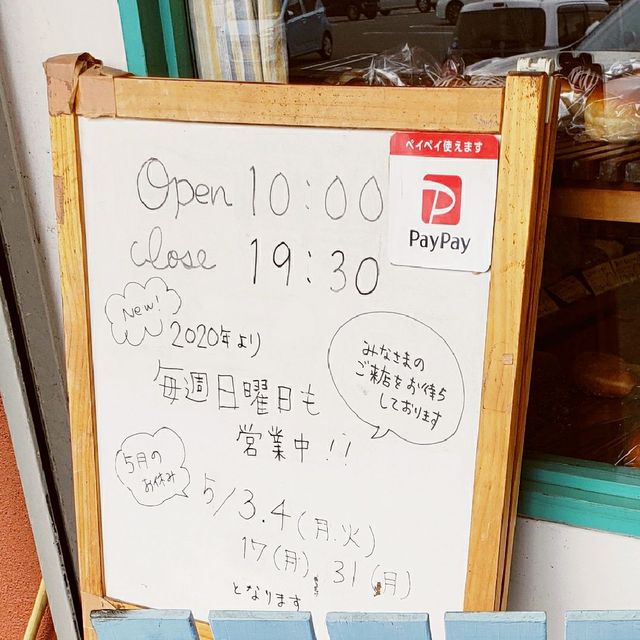 Open 10:00
close 19:30
ペイペイ使えます
PayPay
New!
2020年より
毎週日曜日も
営業中!!
みなさまの
ご来店をお待ち
しております
5月の
お休み
5/3.4(月.火)
17(月) 31(月)
となります